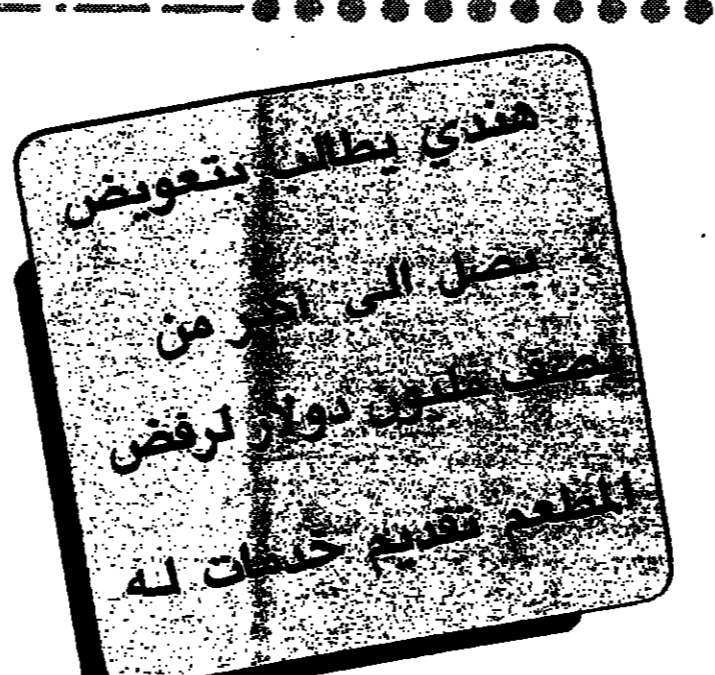 هندي يطالب بتعويض
يصل الى اكثر من
نصف مليون دولار لرفض
المطعم تقديم خدمات له